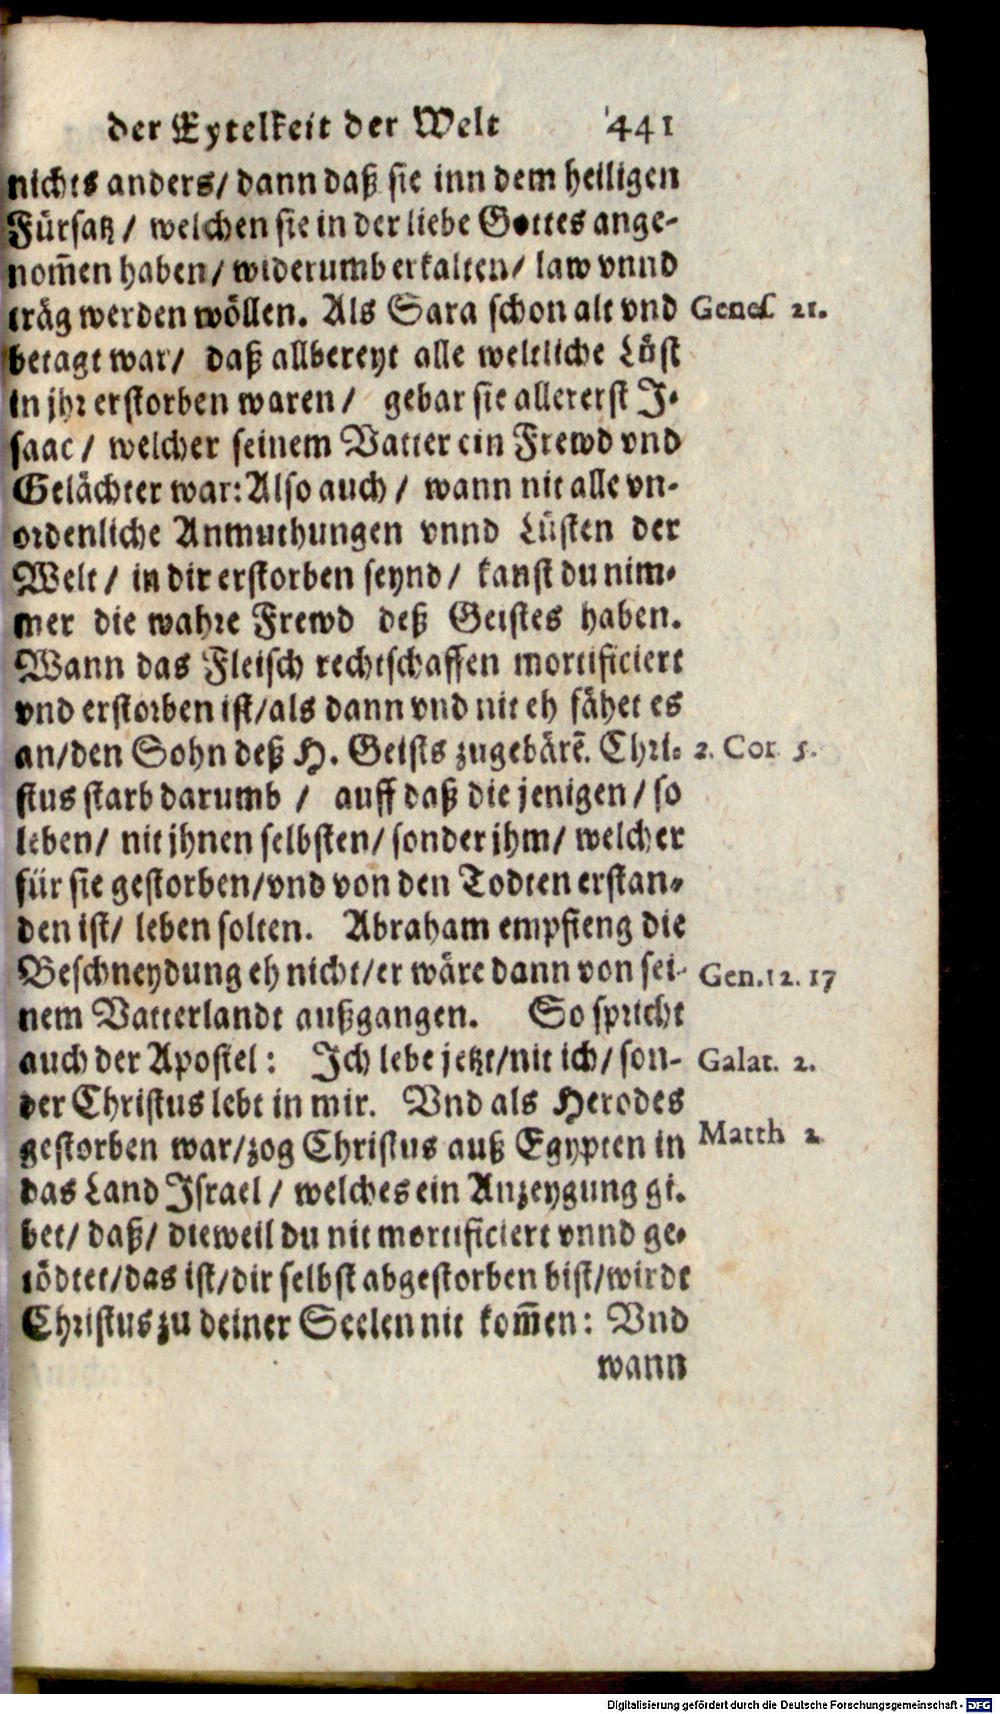 der Eytelkeit der Welt 441
nichts anders/ dann daß sie inn dem heiligen
Fürsatz/ welchen sie in der liebe Gottes ange-
nom̃en haben/ widerumb erkalten/ law vnnd
träg werden wöllen. Als Sara schon alt vnd Genes. 21.
betagt war/ daß allbereyt alle weltliche Lüst
in jhr erstorben waren/ gebar sie allererst J-
saac/ welcher seinem Vatter ein Frewd vnd
Gelächter war: Also auch/ wann nit alle vn-
ordenliche Anmuthungen vnnd Lüsten der
Welt/ in dir erstorben seynd/ kanst du nim-
mer die wahre Frewd deß Geistes haben.
Wann das Fleisch rechtschaffen mortificiert
vnd erstorben ist/als dann vnd nit eh fähet es
an/den Sohn deß H. Geists zugebärẽ. Chri- 2. Cor 5.
stus starb darumb/ auff daß die jenigen/ so
leben/ nit jhnen selbsten/ sonder jhm/ welcher
für sie gestorben/vnd von den Todten erstan-
den ist/ leben solten. Abraham empfieng die
Beschneydung eh nicht/er wäre dann von sei- Gen.12.17
nem Vatterlandt außgangen. So spricht
auch der Apostel: Jch lebe jetzt/nit ich/ son- Galat. 2.
der Christus lebt in mir. Vnd als Herodes
gestorben war/zog Christus auß Egypten in Matth 2
das Land Jsrael/ welches ein Anzeygung gi-
bet/ daß/ dieweil du nit mortificiert vnnd ge-
tödtet/das ist/dir selbst abgestorben bist/wirdt
Christus zu deiner Seelen nit kom̃en: Vnd
wann
Digitalisierung gefördert durch die Deutsche Forschungsgemeinschaft - DFG